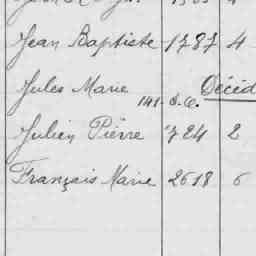 Jean Baptiste 1787 4
Jules Marie Décéd
141. d. c.
Julien Pierre 724 2
François Marie 2618 6